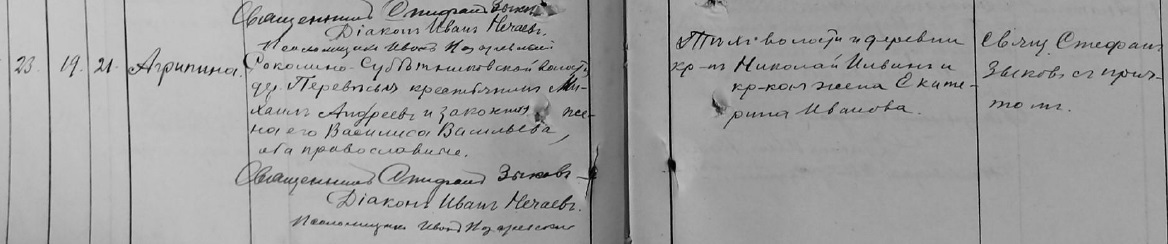 Священникъ Стефанъ Зыковъ
Діаконъ Иванъ Нечаевъ.
Псаломщикъ Иванъ
23. 19. 21. Агрипина.
волости
дер. Перевѣсья крестьянинъ Ми-
хаилъ Андреевъ и законная же-
на его Василиса Васильева,
оба православные.
Священникъ Стефанъ Зыковъ
Діаконъ Иванъ Нечаевъ.
Псаломщикъ Иванъ
Тѣхъ же волости и деревни
кр-нъ Николай Ильинъ и
кр-кая жена Екате-
рина Иванова.
Свящ. Стефанъ
Зыковъ съ прич-
томъ.